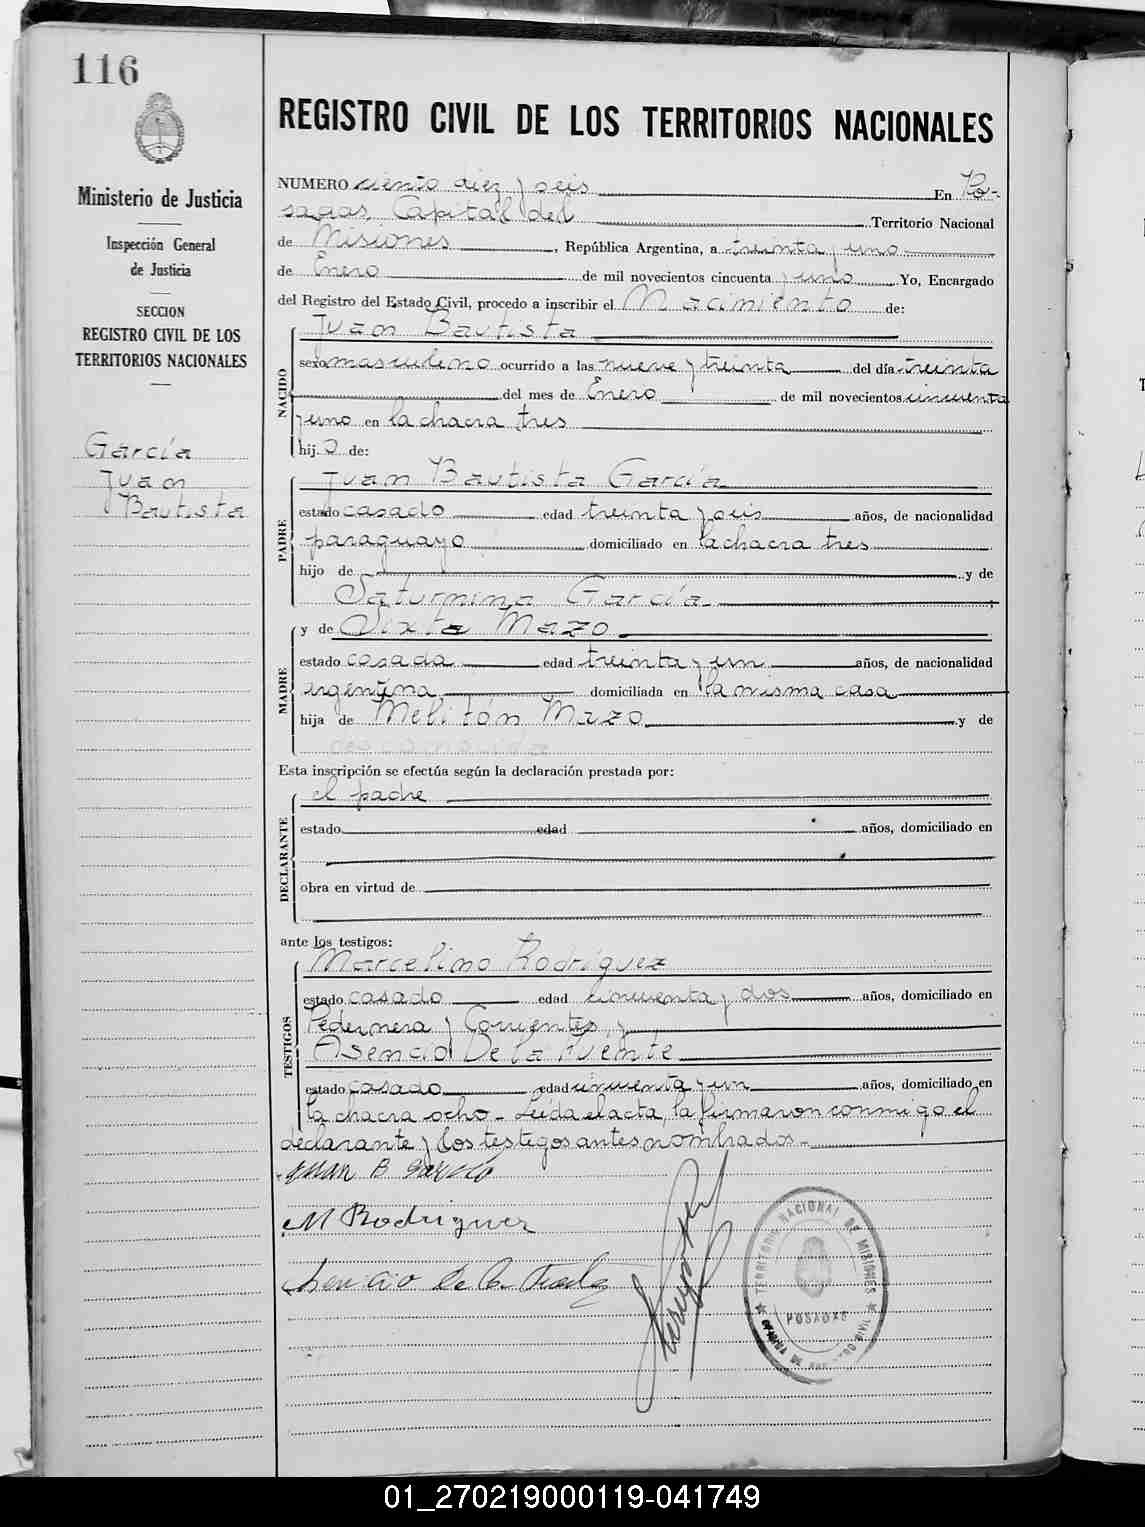 116
REGISTRO CIVIL DE LOS TERRITORIOS NACIONALES
Ministerio de Justicia
Inspección General
de Justicia
SECCION
REGISTRO CIVIL DE LOS
TERRITORIOS NACIONALES
García
Juan
Bautista
NUMERO ciento diez y seis En Po-
sadas, Capital del Territorio Nacional
de Misiones, República Argentina, a treinta y uno
de Enero de mil novecientos cincuenta y uno Yo, Encargado
del Registro del Estado Civil, procedo a inscribir el Nacimiento de:
NACIDO
Juan Bautista
sexo masculino ocurrido a las nueve y treinta del día treinta
del mes de Enero de mil novecientos cincuenta
y uno en la chacra tres
hij o de:
PADRE
Juan Bautista García
estado casado edad treinta y seis años, de nacionalidad
paraguayo domiciliado en la chacra tres
hijo de y de
Saturnina García
MADRE
y de Sixta Mazo
estado casada edad treinta y un años, de nacionalidad
argentina domiciliada en la misma casa
hija de Melitón Mazo y de
desconocida
Esta inscripción se efectúa según la declaración prestada por:
DECLARANTE
el padre
estado edad años, domiciliado en
obra en virtud de
ante los testigos:
TESTIGOS
Marcelino Rodríguez
estado casado edad cincuenta y dos años, domiciliado en
Pedernera y Corrientes, y
Asencio De la Fuente
estado casado edad cincuenta y un años, domiciliado en
la chacra ocho - Leída el acta, la firmaron conmigo el
declarante y los testigos antes nombrados.-
Juan B García
M Rodriguez
Asencio De la Fuente
TERRITORIO NACIONAL DE MISIONES
POSADAS
01_270219000119-041749